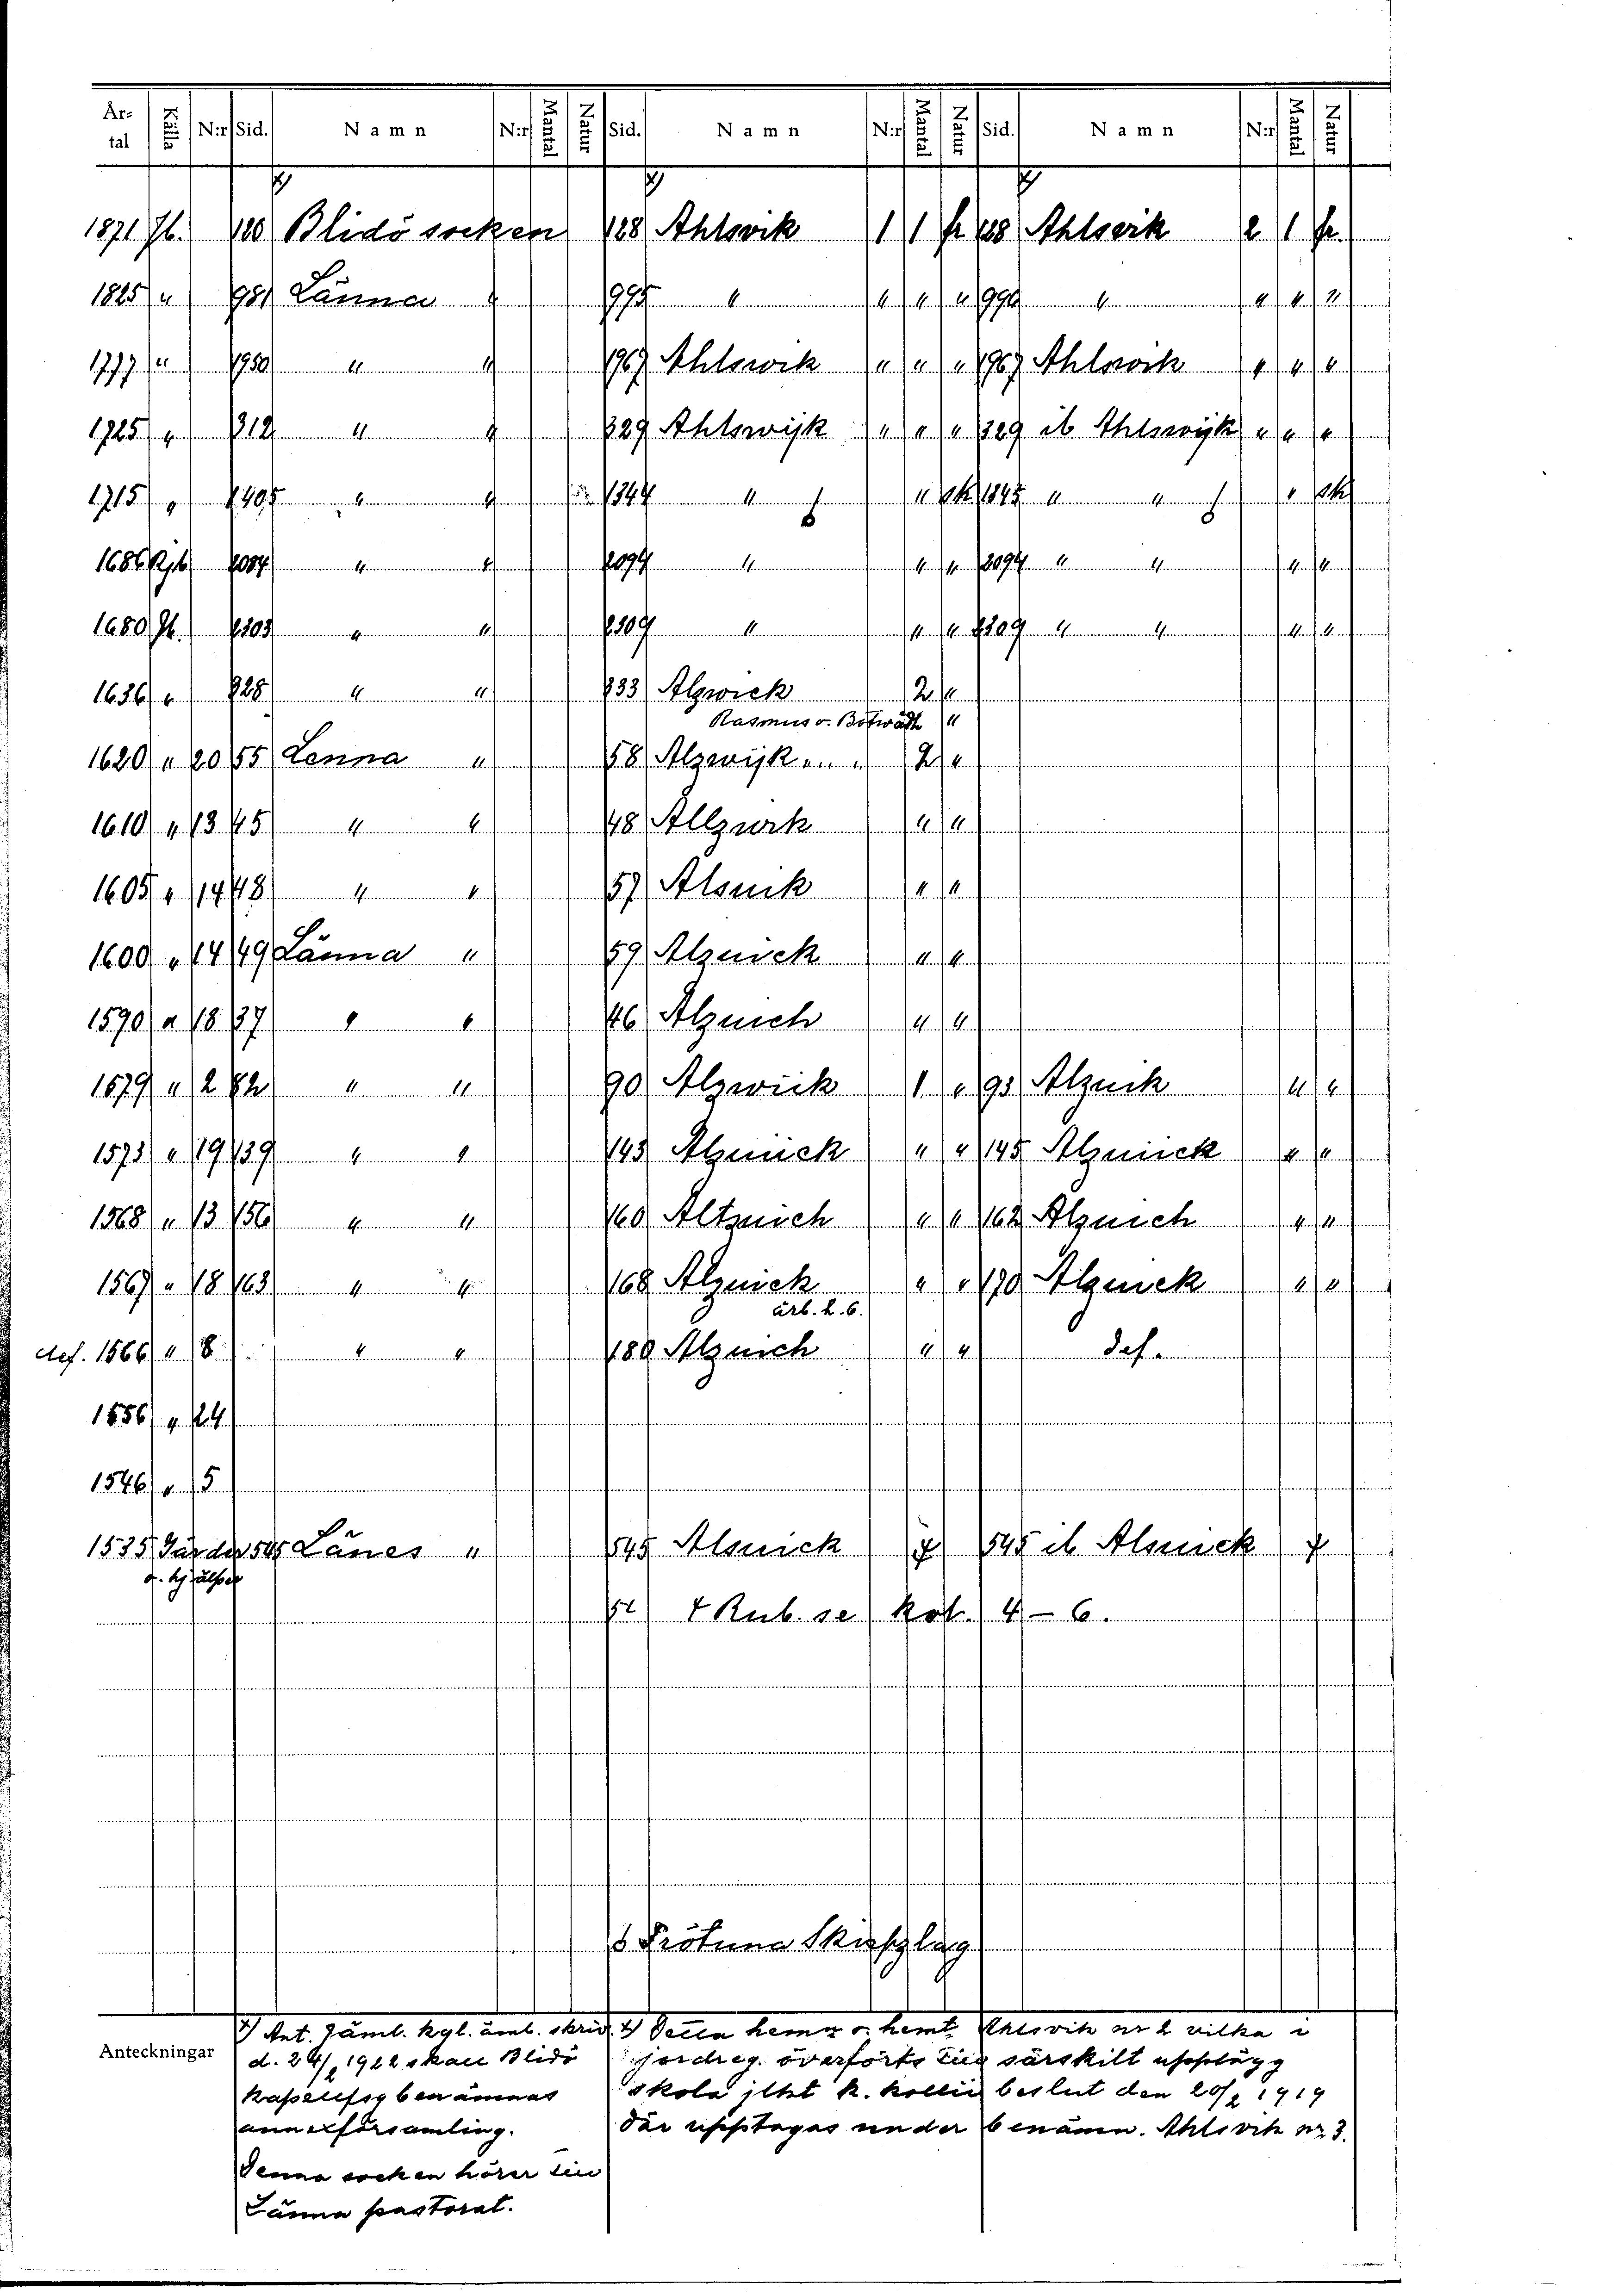 År-tal Källa N:r Sid. Namn N:r Mantal Natur Sid. Namn N:r Mantal Natur Sid. Namn N:r Mantal Natur
1871 Jb. 120 Blidö socken 128 Ahlsvik 1 1 fr 128 Ahlsvik 2 1 fr.
1825 " 981 Länna " 995 " " " " 996 " " " "
1777 " 1950 " " 1967 Ahlswik " " " 1967 Ahlswik " " "
1725 " 312 " " 329 Ahlswijk " " " 329 ib Ahlswijk " " "
1715 " 1405 " " 1344 " " sk 1345 " " " sk
1686 Rjb 2084 " " 2094 " " " 2094 " " " "
1680 Jb. 2303 " " 2309 " " " 2309 " " " "
1636 " 828 " " 833 Alzwick 2 "
Rasmus o. Botwådh "
1620 " 20 55 Lenna " 58 Alzwijk " " 2 "
1610 " 13 45 " " 48 Allzwik " "
1605 " 14 48 " " 57 Alsuik " "
1600 " 14 49 Länna " 59 Alzuick " "
1590 " 18 37 " " 46 Alzuich " "
1579 " 2 82 " " 90 Alzwiik 1 " 93 Alzuik " "
1573 " 19 139 " " 143 Alzuiick " " 145 Alzuiick " "
1568 " 13 156 " " 160 Altzuich " " 162 Alzuich " "
1567 " 18 163 " " 168 Alzuick " " 170 Alzuick " "
årb. 2. 6.
def. 1566 " 8 " " 180 Alzuich " " def.
1556 " 24
1546 " 5
1535 Gärder 545 Länes " 545 Alsuick 545 ib Alsuick
o. hjälper
4 Rub. se kol. 4 - 6.
Frötuna Skipzlag
Anteckningar
Ant. Jäml. kgl. amb. skriv.
d. 24/2 1922 skall Blidö
kapellfsg benämnas
annexförsamling.
Denna socken hörer till
Länna pastorat.
Dessa hem o. hemt. Ahlsvik nr 2 vilka i
jordreg. överförts till särskilt upplägg
skola jlkt k. kollii beslut den 20/2 1919
där upptagas under benämn. Ahlsvik nr 3.